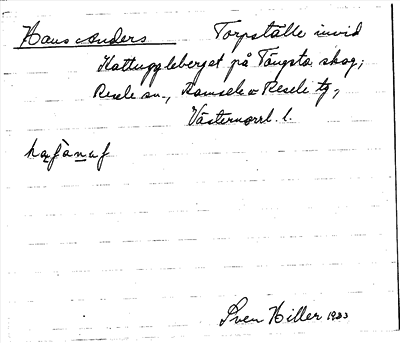 Hans-Anders Torpställe invid
Kattuggleberget på Tängsta skog;
Resele sn., Ramsele o Resele tg,
Västernorrl. l.
Sven Hiller 1933